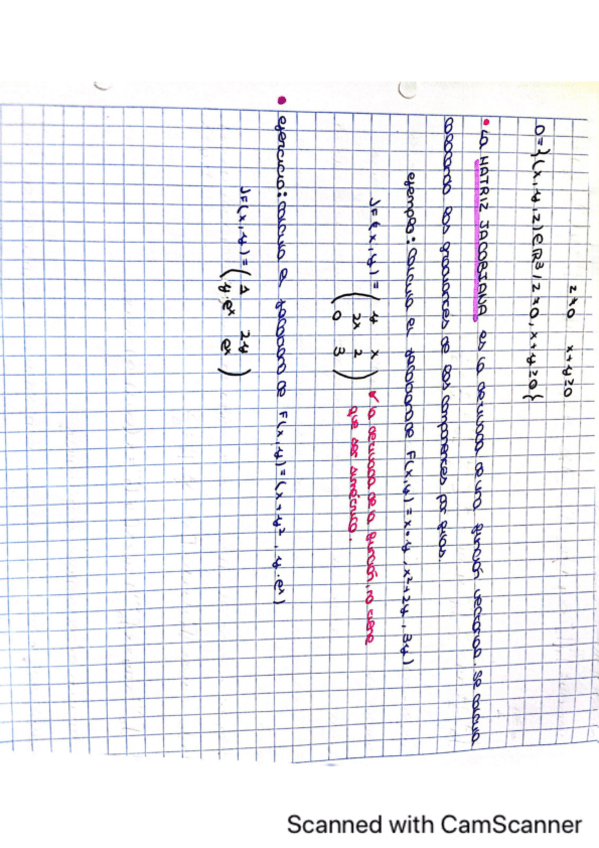 z≠0 x+y≥0
D={(x,y,z)∈ℝ³/z≠0, x+y≥0{
• la MATRIZ JACOBIANA es la derivada de una función vectorial. se calcula
colocando los gradientes de las componentes por filas.
ejemplo: calcula el jacobiano de F(x,y)=x·y, x²+2y, 3y)
JF(x,y)=( y x
2x 2
0 3 )
la derivada de la función, no tiene
que ser simétrica.
• ejercicio: calcula el jacobiano de F(x,y)=(x+y², y·eˣ)
JF(x,y)=( 1 2y
y·eˣ eˣ )
Scanned with CamScanner